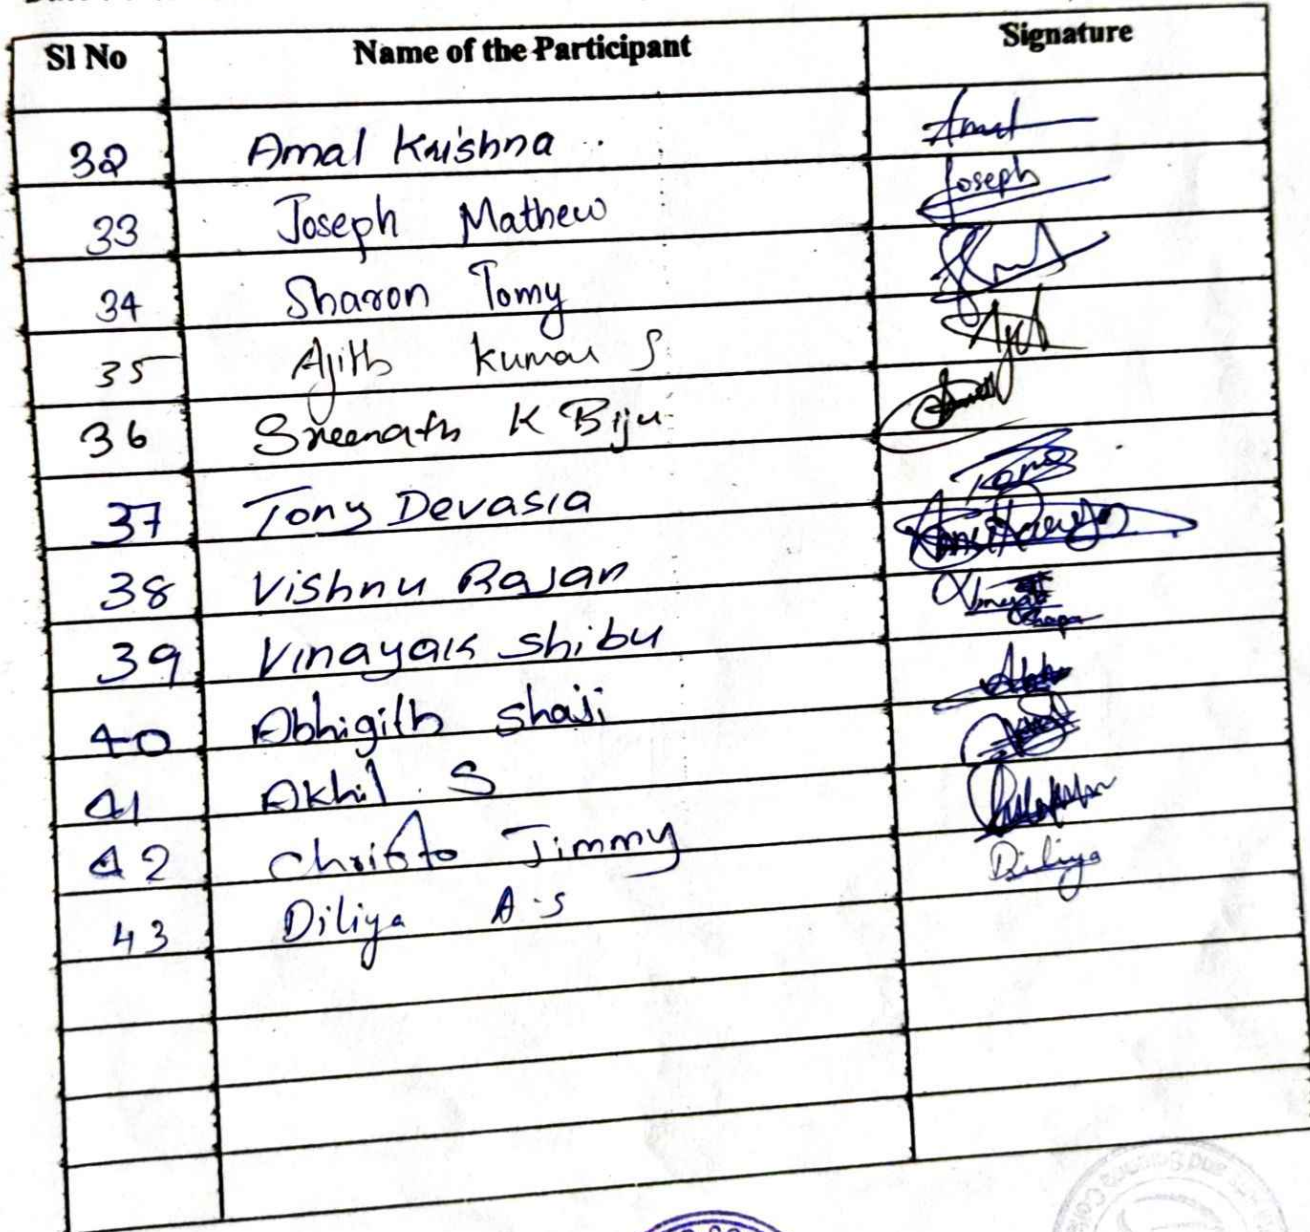 Sl No Name of the Participant Signature
32 Amal Krishna Amal
33 Joseph Mathew Joseph
34 Sharon Tomy
35 Ajith Kumar S Ajit
36 Sreenath K Biju
37 Tony Devasia Tony
38 Vishnu Rajan
39 Vinayak Shibu
40 Abhigith Shaji
41 Akhil S
42 Christo Jimmy
43 Diliya A.S Diliya